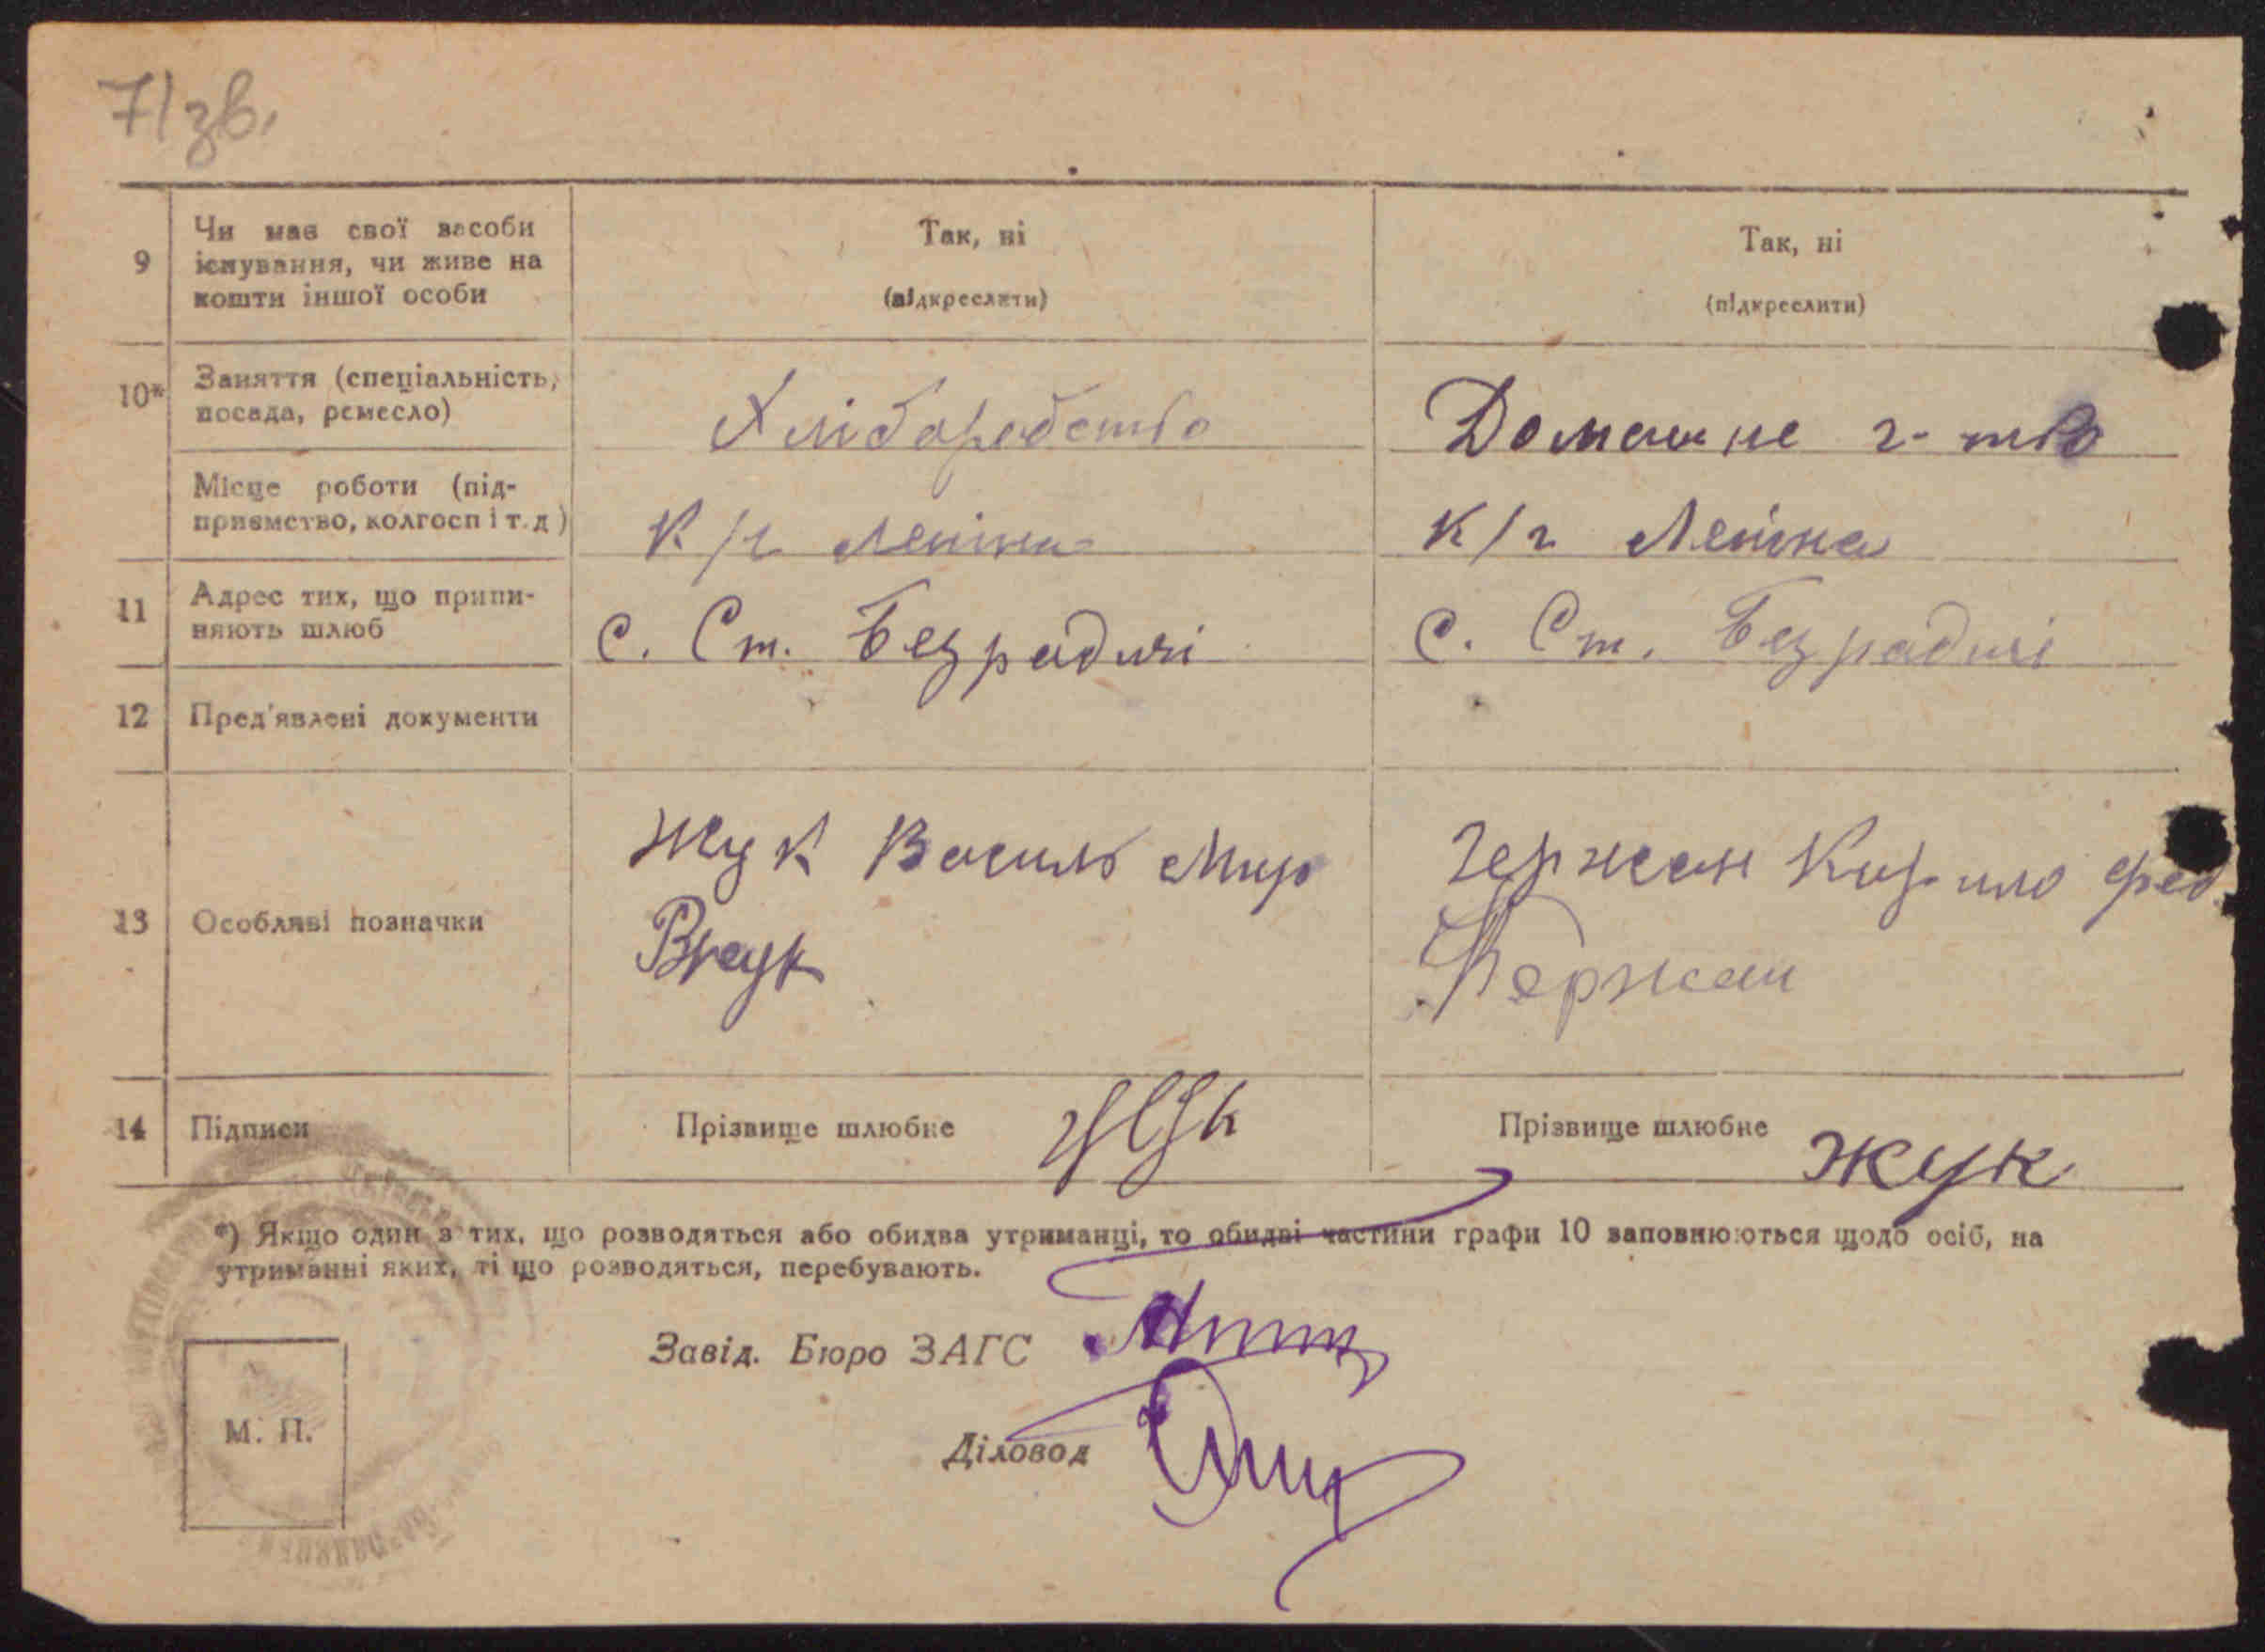 71зв.
9
Чи має свої засоби
існування, чи живе на
кошти іншої особи
Так, ні
(підкреслити)
Так, ні
(підкреслити)
10*
Заняття (спеціальність,
посада, ремесло)
Хліборобство
Домашнє г-тво
Місце роботи (під-
приємство, колгосп і т. д)
К/г Леніна
К/г Леніна
11
Адрес тих, що припи-
няють шлюб
с. Ст. Безрадичі
с. Ст. Безрадичі
12
Пред'явлені документи
13
Особливі позначки
Жук Василь Мир
Гержан Кирило Фед.
Гержан
14
Підписи
Прізвище шлюбне Жук
Прізвище шлюбне Жук
*) Якщо один з тих, що розводяться або обидва утриманці, то обидві частини графи 10 заповнюються щодо осіб, на
утриманні яких, ті що розводяться, перебувають.
Завід. Бюро ЗАГС
Діловод
М. П.